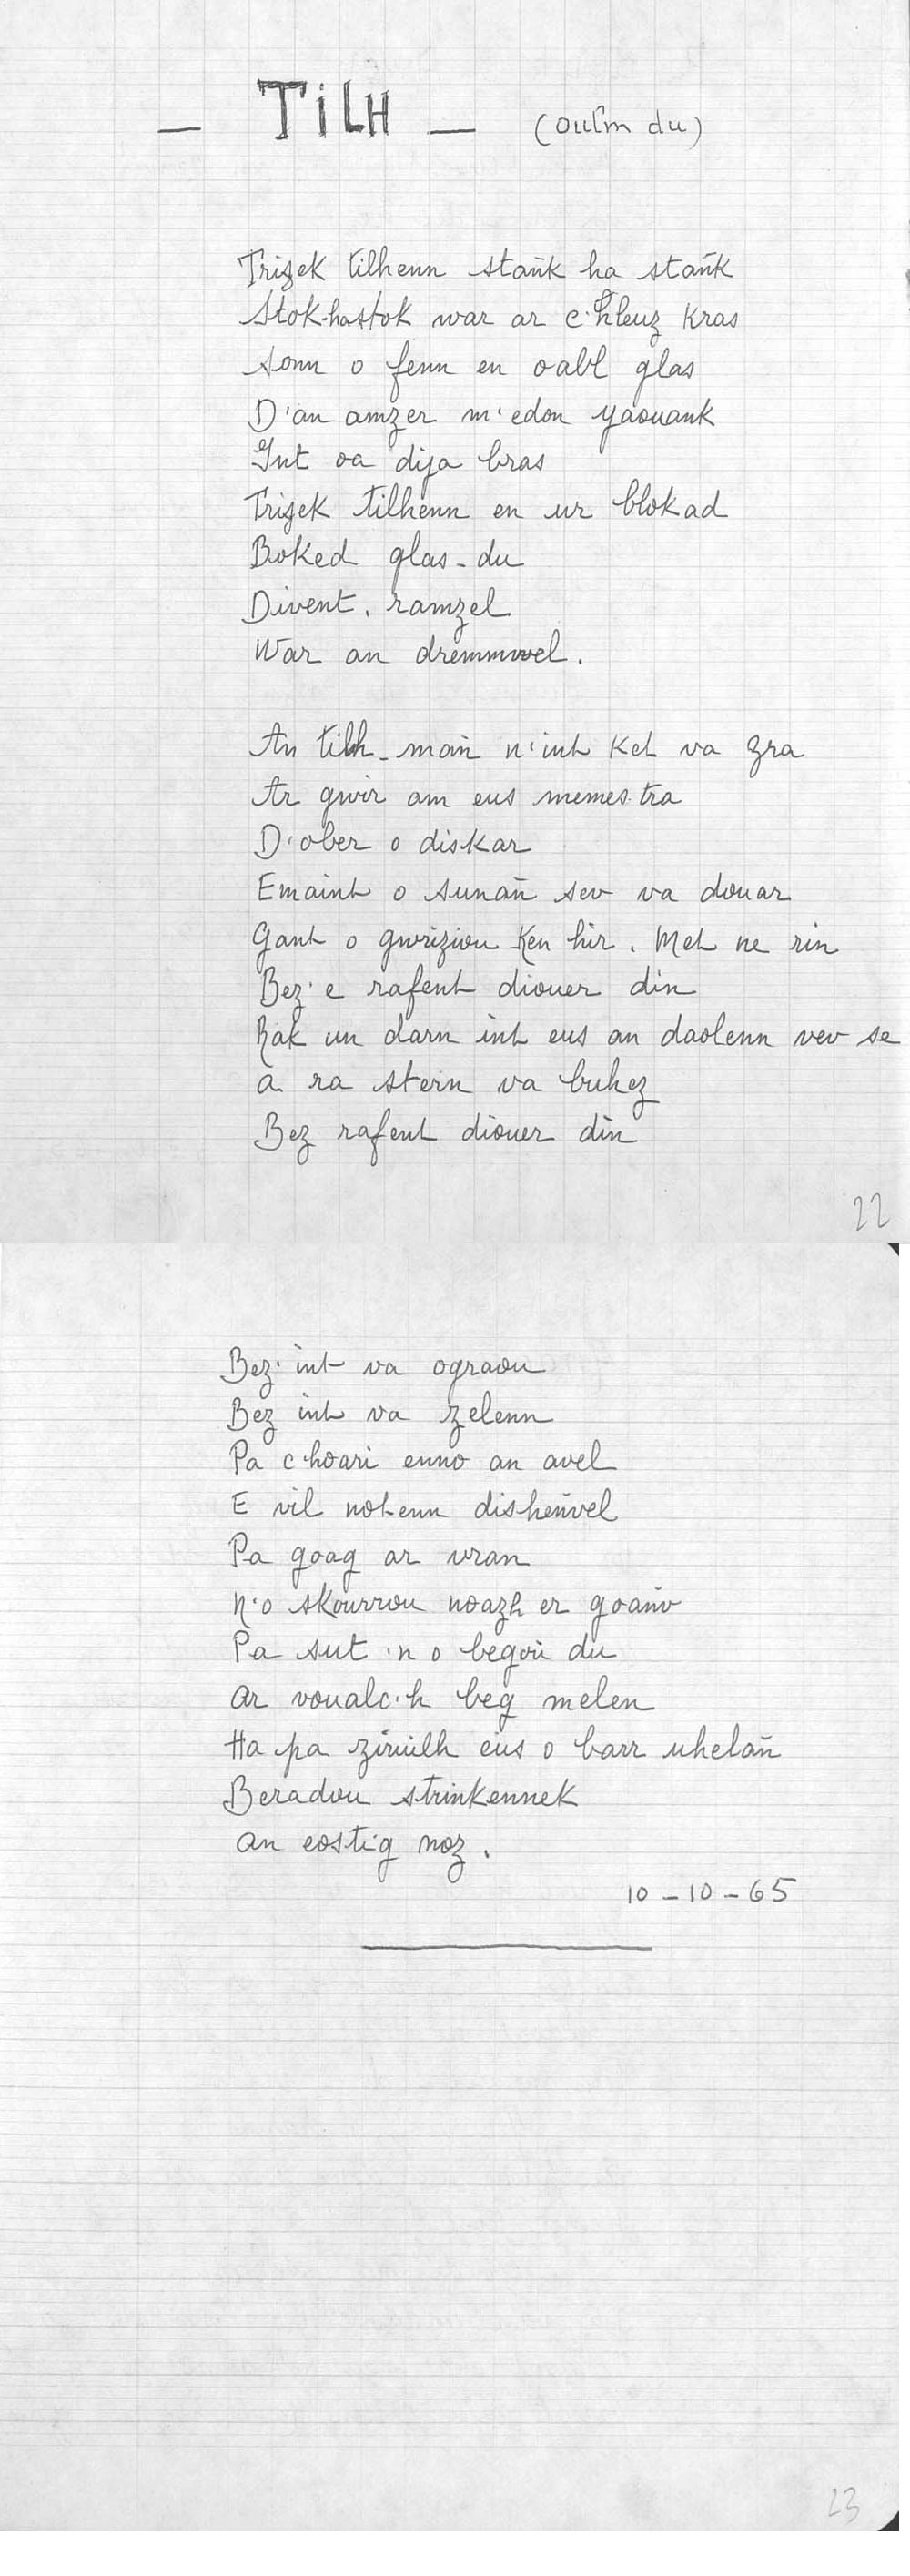 — TiLH — (oulm du)
Trizek tilhenn stañk ha stañk
Stok-hastok war ar c'hleuz kras
Sonn o fenn en oabl glas
D'an amzer m'edon yaouank
Int oa dija bras
Trizek tilhenn en ur blokad
Boked glas-du
Divent, ramzel
War an dremmwel.
An tilh-mañ n'int ket va zra
Ar gwir am eus memes tra
D'ober o diskar
Emaint o sunañ sev va douar
Gant o gwriziou ken hir. Met ne rin
Bez' e rafent diouer din
Rak un darn int eus an daolenn vev se
a ra stern va buhez
Bez rafent diouer din
22
Bez' int va ograou
Bez int va zelenn
Pa c'hoari enno an avel
E vil notenn disheñvel
Pa goag ar vran
n'o skourrou noazh er goañv
Pa sut 'n o begoù du
ar voualc'h beg melen
Ha pa ziruilh eus o barr uhelañ
Beradou strinkennek
an eostig noz.
10-10-65
23